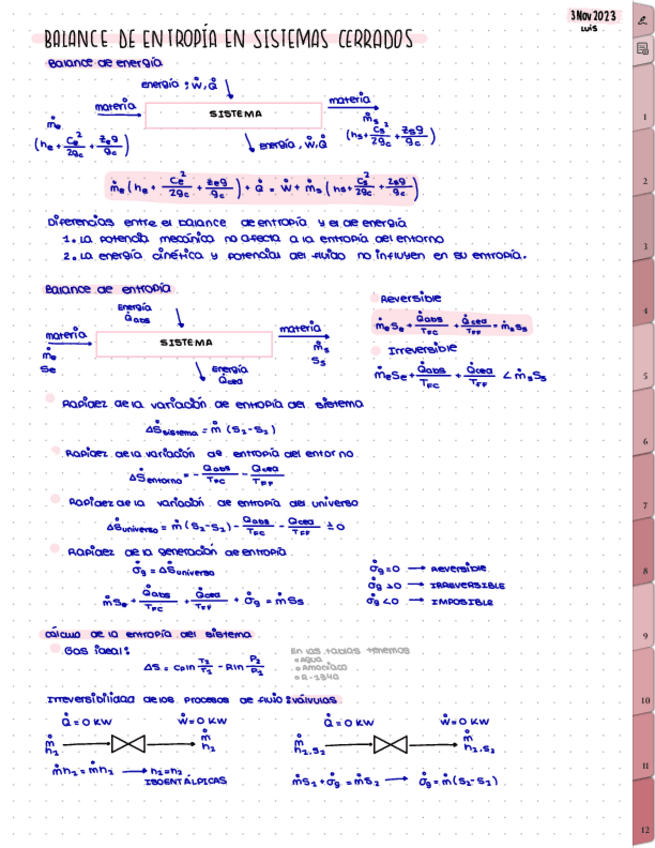 3 Nov 2023
LUIS
BALANCE DE ENTROPÍA EN SISTEMAS CERRADOS
Balance de energía
energía ; Ẇ, Q̇
materia
SISTEMA
materia
ṁe
ṁs
(he + Ce²/2gc + zeg/gc)
energía, Ẇ, Q̇
(hs + Cs²/2gc + zsg/gc)
ṁe (he + Ce²/2gc + zeg/gc) + Q̇ = Ẇ + ṁs (hs + Cs²/2gc + zsg/gc)
Diferencias entre el balance de entropía y el de energía
1. La potencia mecánica no afecta a la entropía del entorno
2. La energía cinética y potencias del fluido no influyen en su entropía.
Balance de entropía
Energía
Q̇abs
materia
SISTEMA
materia
ṁe
Se
ṁs
Ss
Energía
Q̇ced
Reversible
ṁe Se + Q̇abs/TFC + Q̇ced/TFF = ṁs Ss
Irreversible
ṁe Se + Q̇abs/TFC + Q̇ced/TFF < ṁs Ss
Rapidez de la variación de entropía del sistema
ΔṠsistema = ṁ (S2 - S1)
Rapidez de la variación de entropía del entorno
ΔṠentorno = - Q̇abs/TFC - Q̇ced/TFF
Rapidez de la variación de entropía del universo
ΔṠuniverso = ṁ (S2 - S1) - Q̇abs/TFC - Q̇ced/TFF ≥ 0
Rapidez de la generación de entropía
σ̇g = ΔṠuniverso
ṁSe + Q̇abs/TFC + Q̇ced/TFF + σ̇g = ṁSs
σ̇g = 0 → REVERSIBLE
σ̇g > 0 → IRREVERSIBLE
σ̇g < 0 → IMPOSIBLE
cálculo de la entropía del sistema
Gas ideal:
ΔS = Cp ln T2/T1 - R ln P2/P1
En las tablas tenemos
AGUA
Amoniaco
R-134a
Irreversibilidad de los procesos de flujo: válvulas
Q̇ = 0 KW
Ẇ = 0 KW
ṁ
h1
ṁ
h2
ṁh1 = ṁh2 → h1 = h2
ISOENTÁLPICAS
Q̇ = 0 KW
Ẇ = 0 KW
ṁ
h1, S1
ṁ
h2, S2
ṁS1 + σ̇g = ṁS2 → σ̇g = ṁ(S2 - S1)
1
2
3
4
5
6
7
8
9
10
11
12